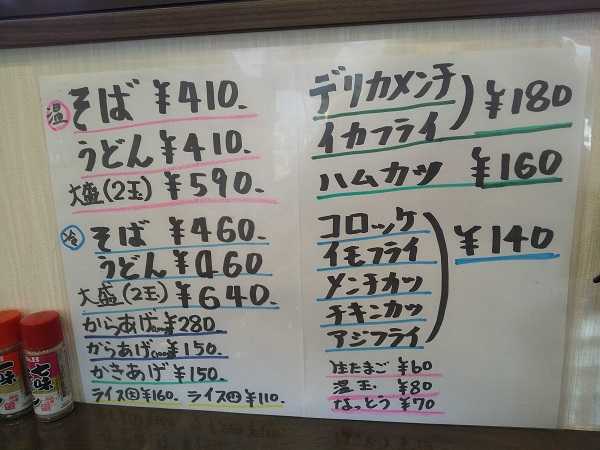 温 そば ¥410.
うどん ¥410.
大盛(2玉) ¥590.
冷 そば ¥460.
うどん ¥460
大盛(2玉) ¥640.
からあげ ¥280
からあげ ¥150.
かきあげ ¥150.
ライス大 ¥160. ライス小 ¥110.
デリカメンチ
イカフライ ¥180
ハムカツ ¥160
コロッケ
イモフライ
メンチカツ
チキンカツ
アジフライ
¥140
生たまご ¥60
温玉. ¥80
なっとう ¥70
一味
七味